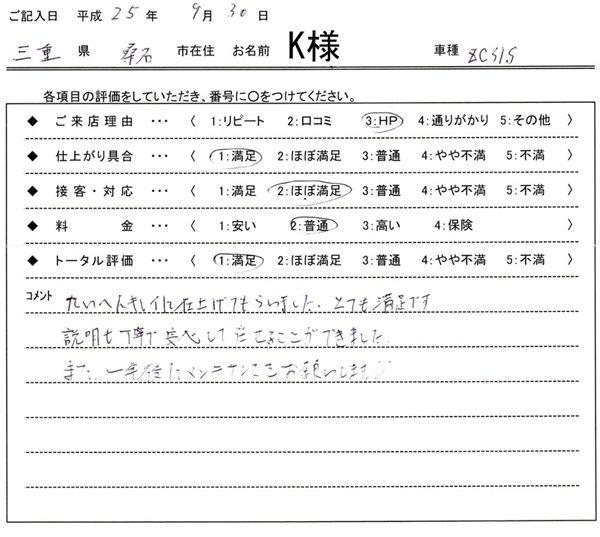 ご記入日 平成 25 年 9 月 30 日
三重 県 桑名 市在住 お名前 K様 車種 ZC31S
各項目の評価をしていただき、番号に○をつけてください。
◆ ご来店理由 ・・・ 〈 1:リピート 2:口コミ 3:HP 4:通りがかり 5:その他 〉
◆ 仕上がり具合 ・・・ 〈 1:満足 2:ほぼ満足 3:普通 4:やや不満 5:不満 〉
◆ 接客・対応 ・・・ 〈 1:満足 2:ほぼ満足 3:普通 4:やや不満 5:不満 〉
◆ 料 金 ・・・ 〈 1:安い 2:普通 3:高い 4:保険 〉
◆ トータル評価 ・・・ 〈 1:満足 2:ほぼ満足 3:普通 4:やや不満 5:不満 〉
コメント たいへんキレイに仕上げてもらいました。とても満足です
説明も丁寧で安心して任せることができました。
また、一年後にメンテナンスをお願いします